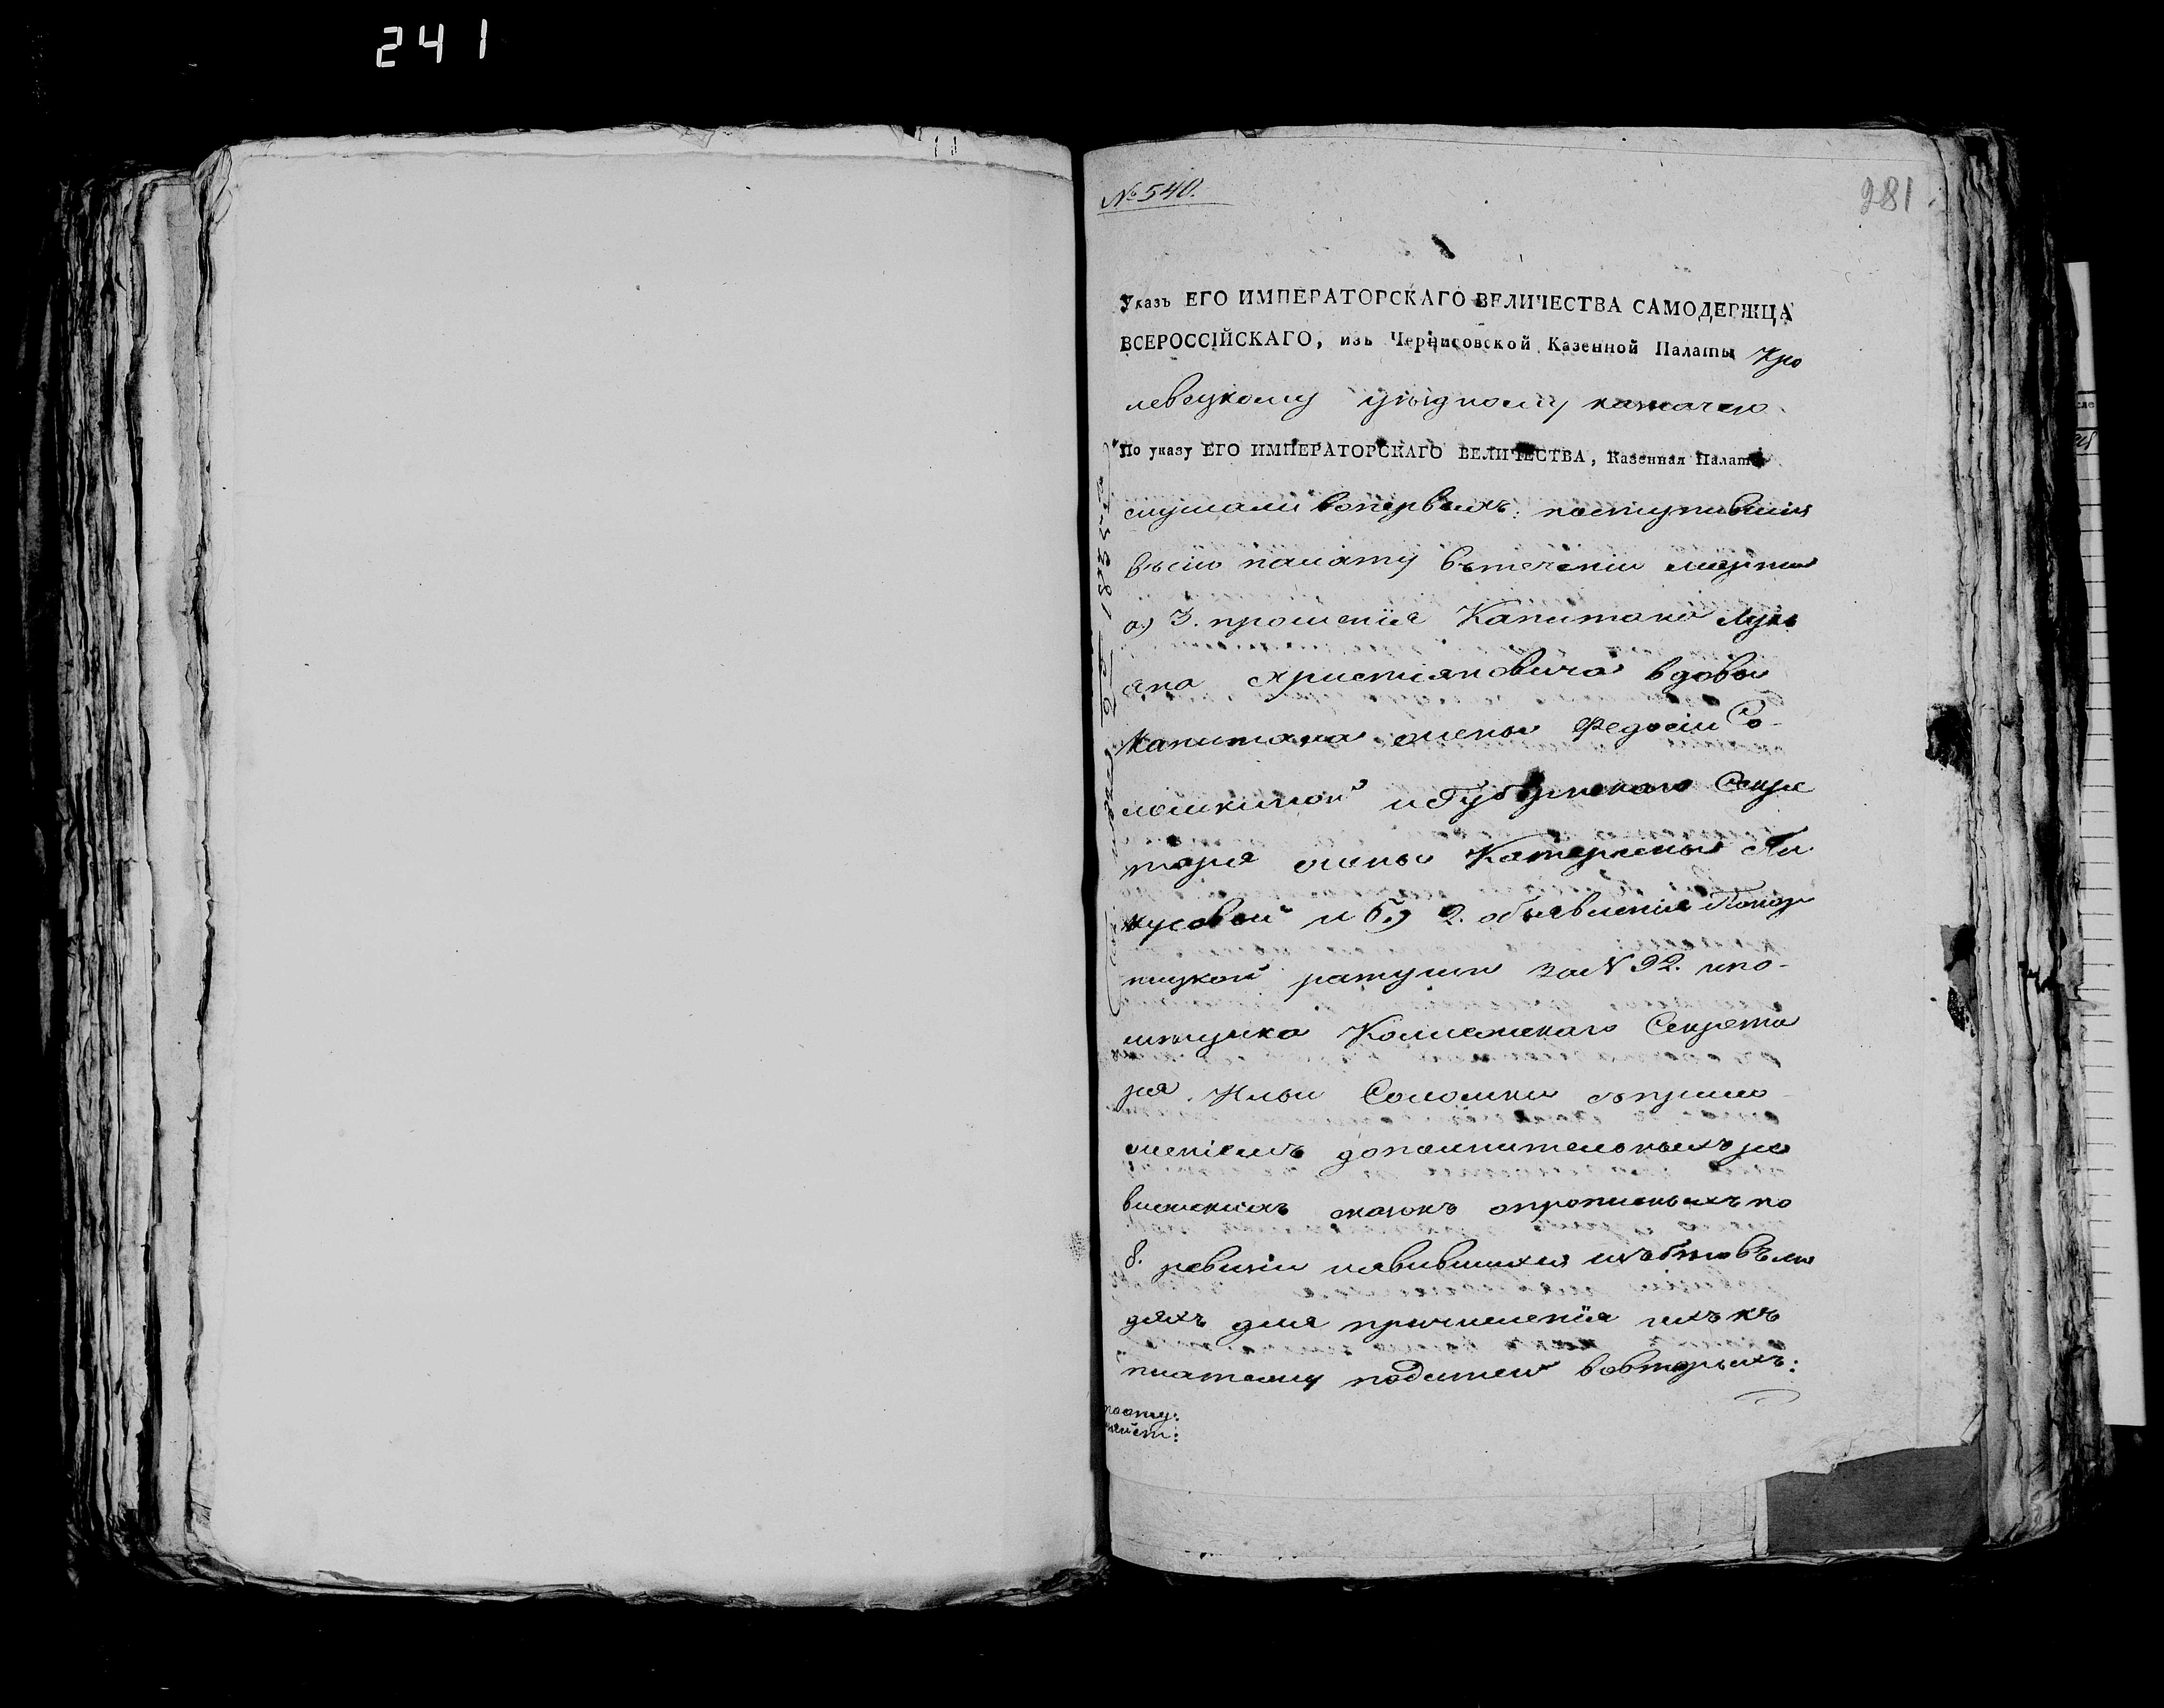 241
№ 540.
281
Указъ ЕГО ИМПЕРАТОРСКАГО ВЕЛИЧЕСТВА САМОДЕРЖЦА
ВСЕРОССІЙСКАГО, изъ Черниговской Казенной Палаты Кро
левецкому уѣздному казначею.
По указу ЕГО ИМПЕРАТОРСКАГО ВЕЛИЧЕСТВА, Казенная Палата
слушали вопервыхъ: поступившия
въсію палату втеченіи
а.) 3. прошенія Капитана Луки
ана Христіановича вдовы
Капитана жены Федосіи Со-
лошкиной и Губернскаго Секре
таря жены Катерины
и б.) 2. объявленія Коноп
ницкой ратуши за N 92. и по-
мѣщика Колежскаго Секрета
ря Ильи Соломки съ прило
женіемъ дополнительныхъ ре
визскихъ сказокъ опрописныхъ по
8. ревизіи иявившихся изъбѣговъ лю
дяхъ для причисленія ихъ къ
платежу податей вовторыхъ: